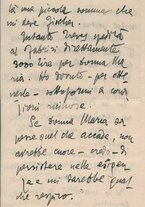 là una piccola somma che
mi deve Giselda.
Intanto Treves spedirà
al Fabrizi direttamente
3000 lire per donna Ma-
ria. Ho dovuto - per otte-
nerle - sottopormi a cond
zioni
Se donna Maria ca-
pisse quel che accade, non
avrebbe cuore - credo - di
persistere nelle esigen-
ze e mi sarebbe
che respiro.